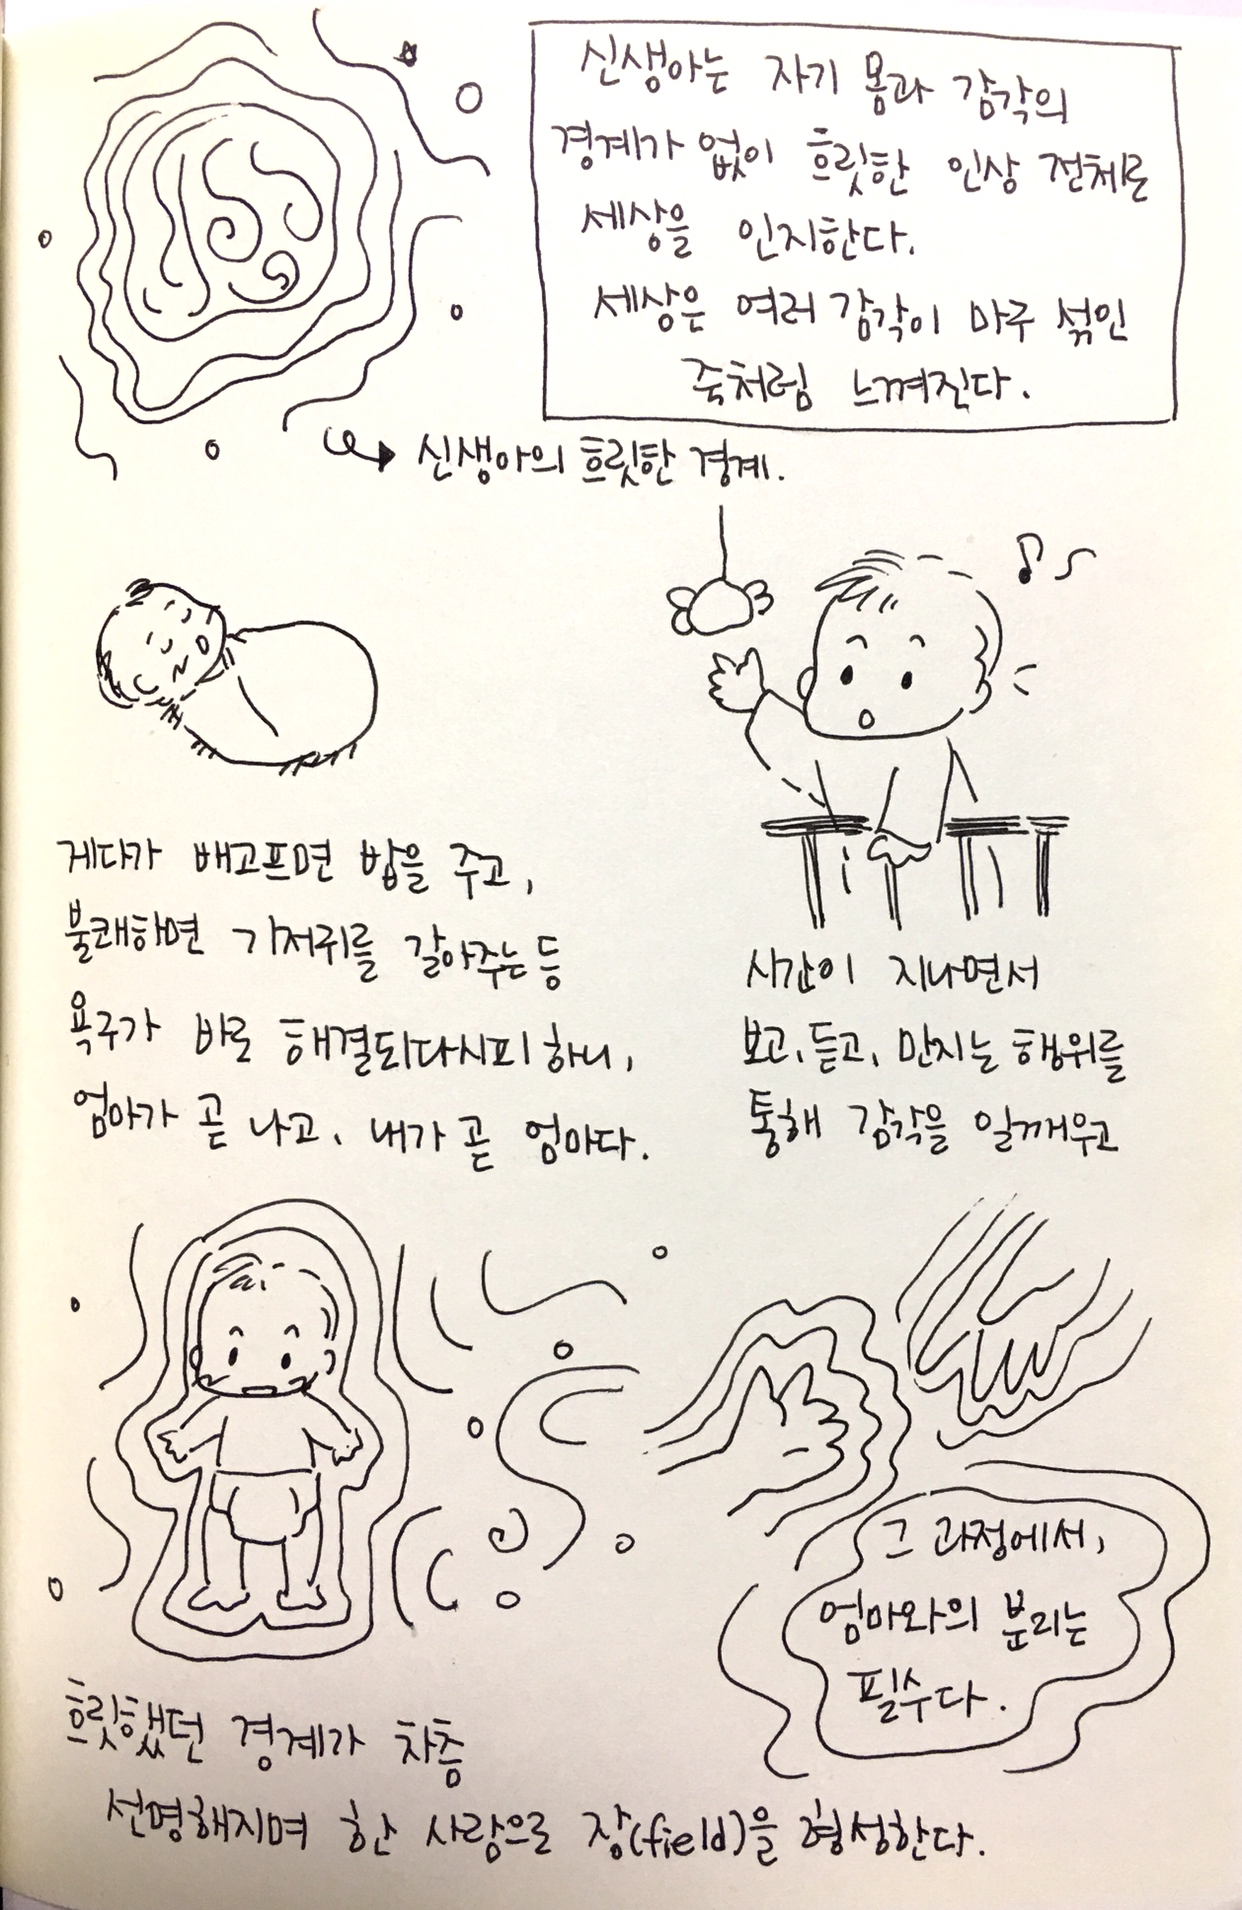 신생아는 자기 몸과 감각의
경계가 없이 흐릿한 인상 전체로
세상을 인지한다.
세상은 여러 감각이 마구 섞인
죽처럼 느껴진다.
신생아의 흐릿한 경계.
게다가 배고프면 밥을 주고,
불쾌하면 기저귀를 갈아주는 등
욕구가 바로 해결되다시피 하니,
엄마가 곧 나고, 내가 곧 엄마다.
시간이 지나면서
보고, 듣고, 만지는 행위를
통해 감각을 일깨우고
흐릿했던 경계가 차츰
선명해지며 한 사람으로 장(field)을 형성한다.
그 과정에서,
엄마와의 분리는
필수다.